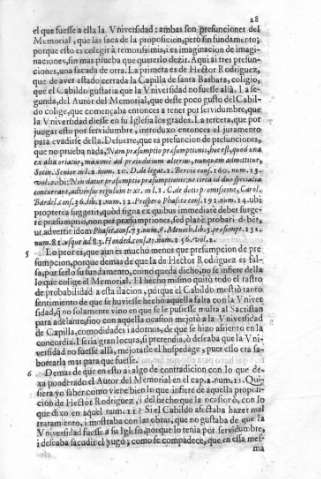 28
el que fuesse a ella la Vniversidad; ambas son presunciones del
Memorial, que las saca de la proposicion, pero sin fundamento;
porque esto es colegir à remotissimis, i es imaginacion de imagi-
naciones, sin mas prueba que quererlo dezir. Aqui ài tres presun-
ciones, una sacada de otra. La primera es de Hector Rodriguez,
que de aver estado cerrada la Capilla de santa Barbara, coligio,
que el Cabildo gustaria que la Vniversidad no fuesse allà. La se-
gunda, del Autor del Memorial, que deste poco gusto del Cabil-
do colige, que començaba entonces a tener por servidumbre, que
la Vniversidad diesse en su Iglesia los grados. La tercera, que por
juzgar esto por servidumbre, introduxo entonces el juramento
para evadirse della. De suerte, que es presuncion de presunciones,
que no prueba nada, Nam præsumptio præsumptionis, hoc est, quod una
ex alia oriatur, maximè ad præiudicium alterius, nunquam admittitur,
vol. 2. ibi: Non datur præsumptio præsumptionis: ne circa id duo specialia
concurrant, adversus regulam text. in l. 1. C. de dotis promissione, Carol.
propterea suggerit, quòd signa ex quibus immediatè debet surge-
re præsumptio, non per præsumptiones, sed planè probari deber,
5 Lo peor es, que aun es mucho menos que presumpcion de pre-
sumpcion, porque demas de que la de Hector Rodriguez es fal-
sa, por serlo su fundamento, como queda dicho, no se infiere della
lo que colige el Memorial. I el hecho mismo quitò todo el rastro
de probabilidad a esta ilacion, porque el Cabildo mostrò tanto
sentimiento de que se huviesse hecho aquella falta con la Vniver
sidad, q no solamente vino en que se le pusiesse multa al Sacristan
para adelante, sino con aquella ocasion mejorò a la Vniversidad
de Capilla, comodidades i adornos, de que se hizo assiento en la
concordia. I seria gran locura, si pretendia, ò deseaba que la Vni-
versidad no fuesse allà, mejorarle el hospedage, pues esso era sa-
borearla mas para que fuesse.
6 Demas de que en esto ài algo de contradicion con lo que de-
xa ponderado el Autor del Memorial en el cap. 2. num. 11. Qui-
siera yo saber como viene bien lo que infiere de aquella proposi-
cion de Hector Rodriguez, i del hecho que la ocasionò, con lo
que dixo en aquel num. 11? Si el Cabildo afectaba hazer mal
tratamiento, i mostraba con las obras, que no gustaba de que la
Vniversidad fuesse a su Iglesia, porque lo tenia por servidumbre,
i deseaba sacudir el yugo; como se compadece, que en essa mes-
ma